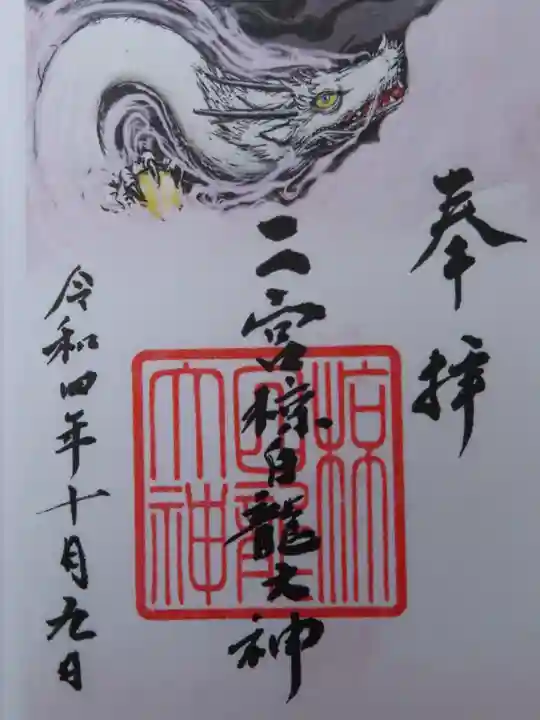 奉拝
二宮椋白龍大神
椋白龍大神
令和四年十月九日